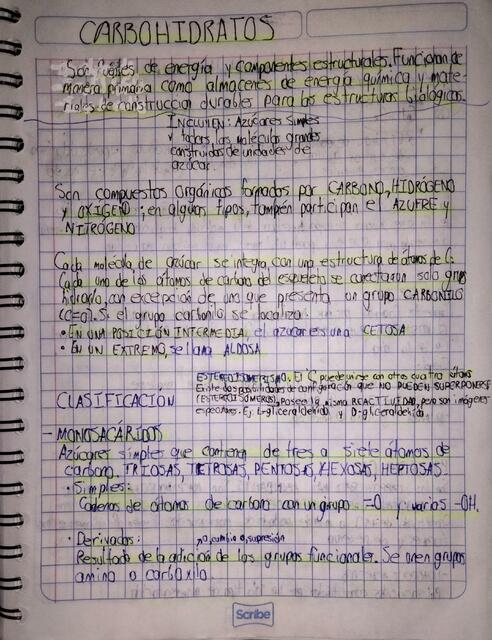 CARBOHIDRATOS
Son fuentes de energía y componentes estructurales. Funcionan de
manera primaria como almacenes de energía química y mate-
riales de construcción durables para las estructuras biológicas.
INCLUYEN: Azúcares simples
y todas las moléculas grandes
construidas de unidades de
azúcar.
Son compuestos orgánicos formados por CARBONO, HIDRÓGENO
y OXÍGENO; en algunos tipos, también participan el AZUFRE y
NITRÓGENO
Cada molécula de azúcar se integra con una estructura de átomos de C.
Cada uno de los átomos de carbono del esqueleto se conecta con un solo grupo
hidroxilo, con excepción de uno que presenta un grupo CARBONILO
(C=O). Si el grupo carbonilo se localiza:
• EN UNA POSICIÓN INTERMEDIA, el azúcar es una CETOSA
• EN UN EXTREMO, se llama ALDOSA
ESTEREOISOMERISMO. El C puede unirse con otros cuatro átomos
Existe dos posibilidades de configuración que NO PUEDEN SUPERPONERSE
(ESTEREOISÓMEROS). Posee la misma REACTIVIDAD, pero son imágenes
especulares. Ej. L-gliceraldehído y D-gliceraldehído.
CLASIFICACIÓN
- MONOSACÁRIDOS
Azúcares simples que contienen de tres a siete átomos de
carbono. TRIOSAS, TETROSAS, PENTOSAS, HEXOSAS, HEPTOSAS.
• Simples:
Cadenas de átomos de carbono con un grupo =O y varios -OH.
• Derivados: o, cambio o supresión
Resultado de la adición de los grupos funcionales. Se unen grupos
amino o carboxilo.
Scribe